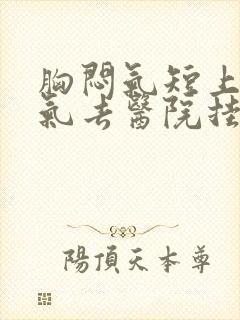 胸悶氣短上
氣去醫院挂
陽頂天本尊